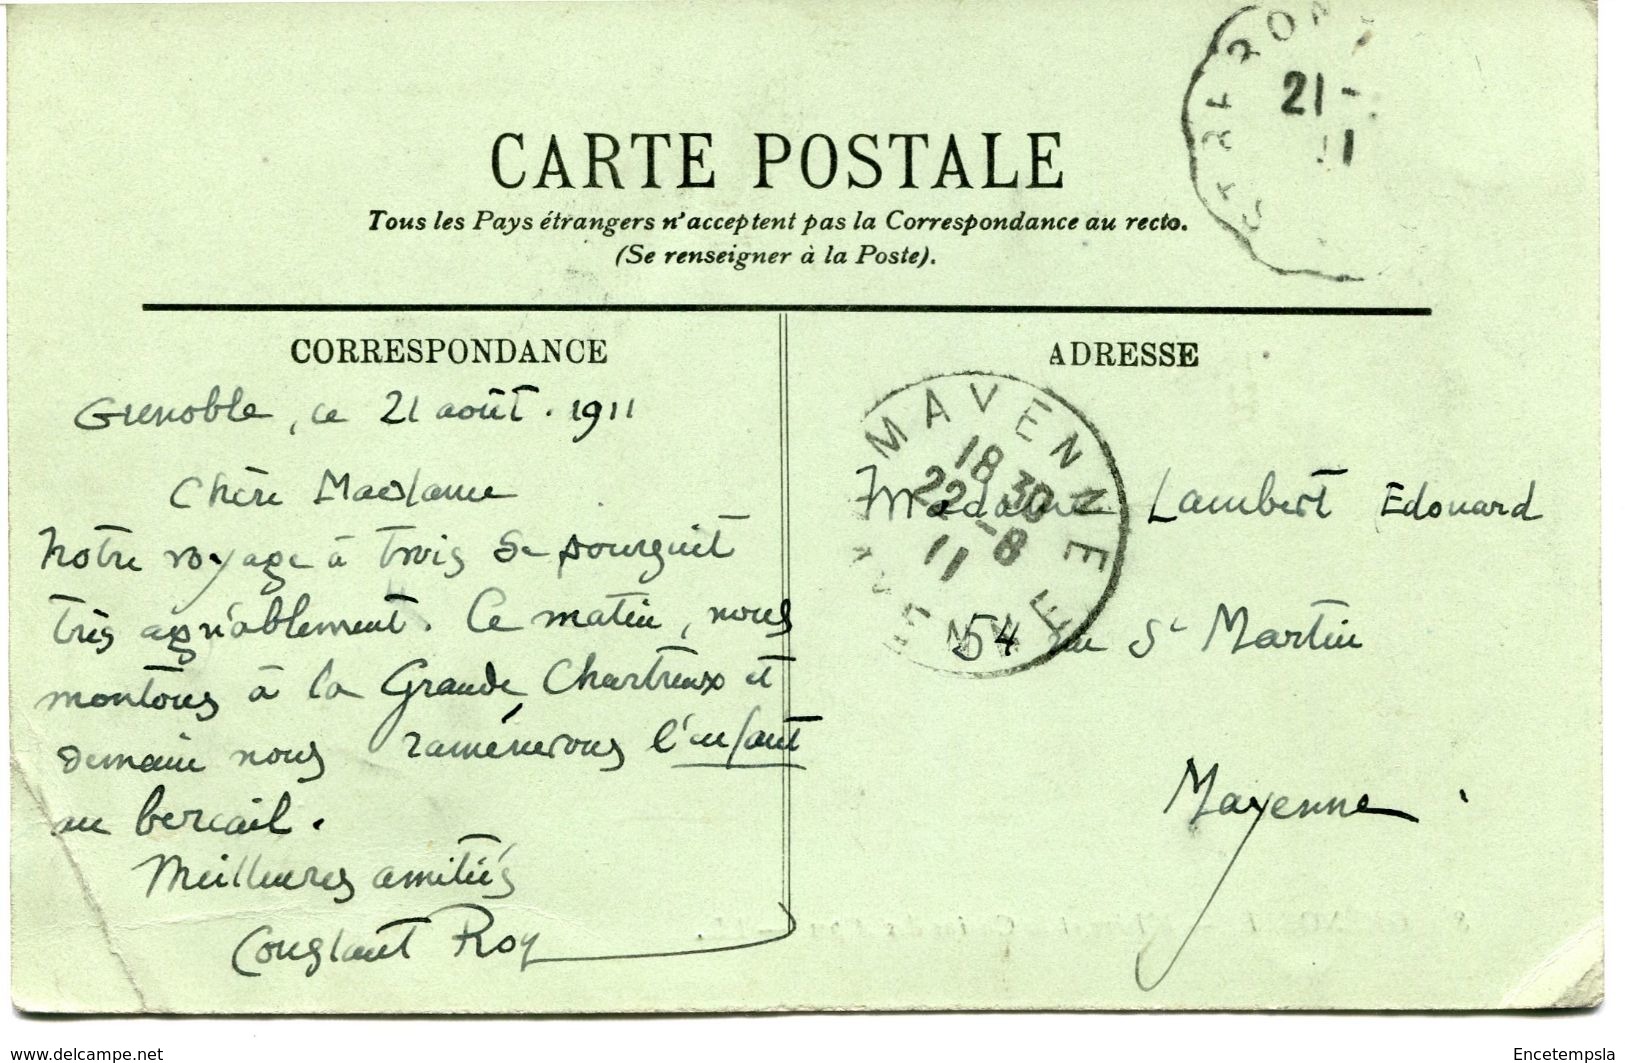 CARTE POSTALE
Tous les Pays étrangers n'acceptent pas la Correspondance au recto.
(Se renseigner à la Poste).
21 -
11
CORRESPONDANCE
Grenoble, ce 21 août . 1911
Chère Madame
Notre voyage à trois se poursuit
très agréablement. Ce matin, nous
montons à la Grande Chartreux et
demain nous ramènerons l'enfant
au bercail.
Meilleures amitiés
Constant Roy
ADRESSE
MAYENNE
18 30
22 - 8
11
MAYENNE
Madame Lambert Edouard
54 rue St Martin
Mayenne.
www.delcampe.net
Encetempsla